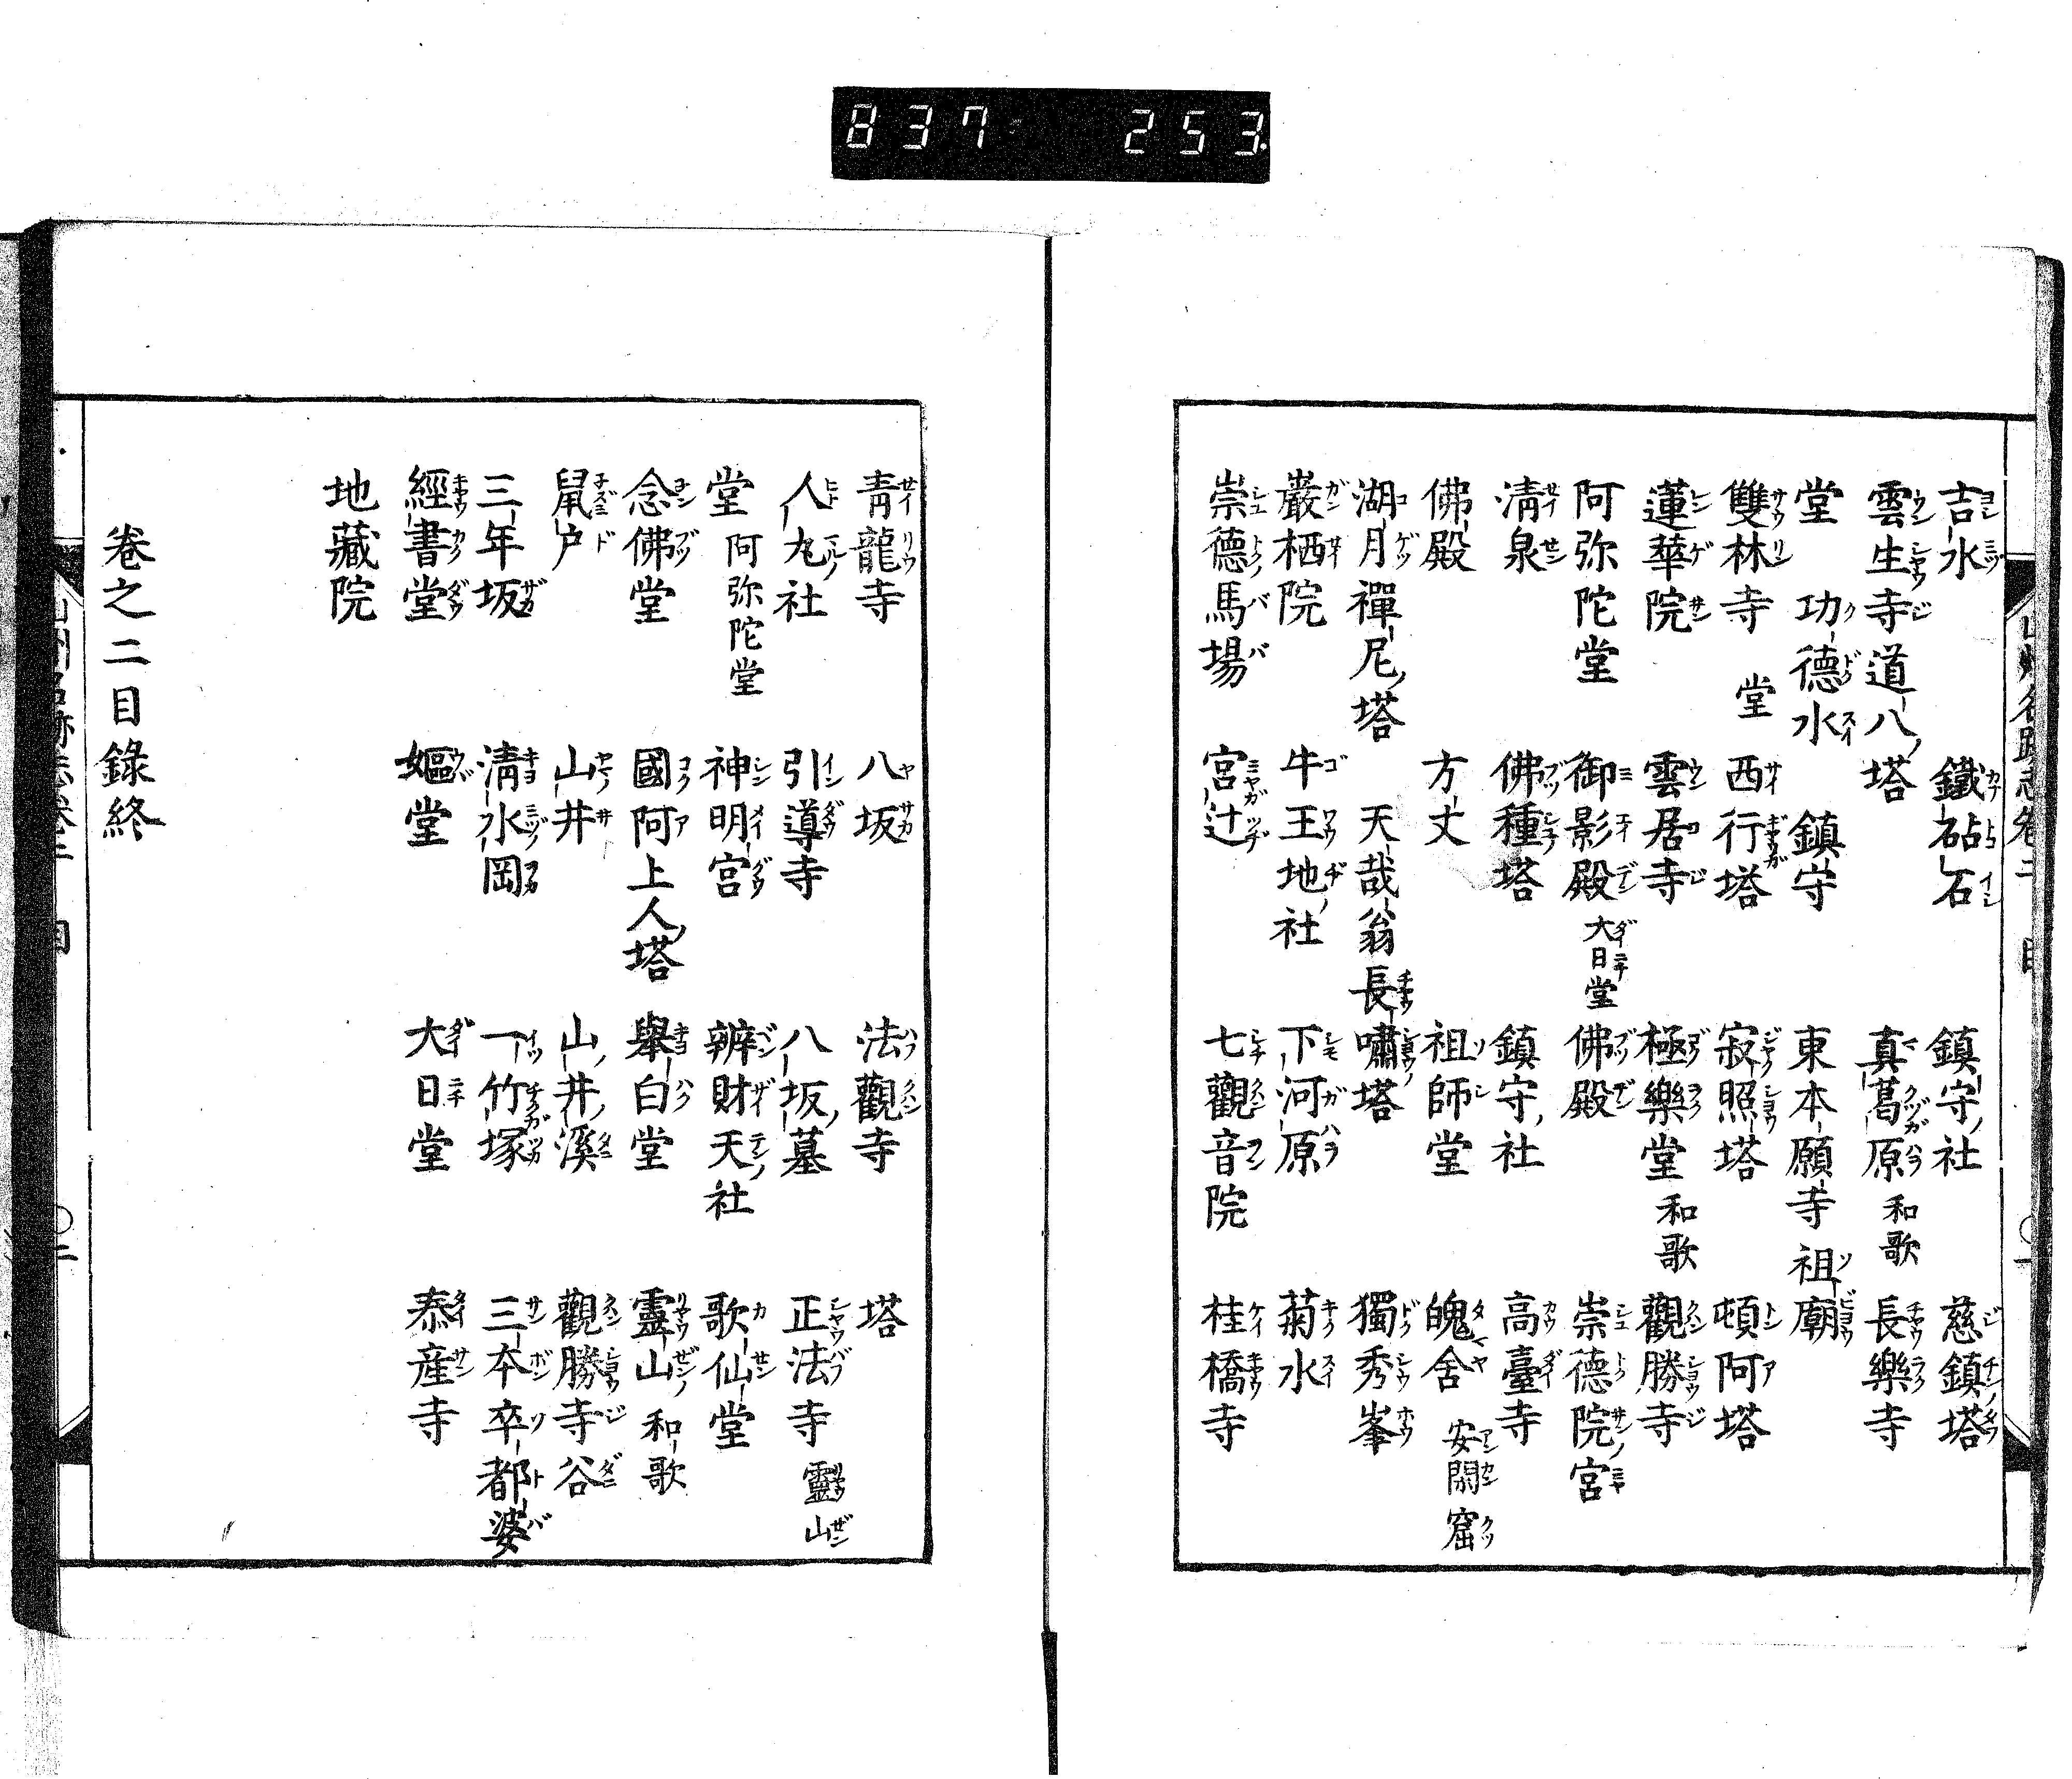 837 253
吉水 鐵砧石 鎮守ノ社 慈鎮塔
雲生寺 道八ノ塔 真葛原 和歌 長樂寺
堂 功德水 鎮守 東本願寺 祖廟
雙林寺 堂 西行塔 寂照塔 頓阿塔
蓮華院 雲居寺 極樂堂 和歌 觀勝寺
阿弥陀堂 御影殿 大日堂 佛殿 崇德院宮
清泉 佛種塔 鎮守ノ社 高臺寺
佛殿 方丈 祖師堂 魄舍 安閑窟
湖月禪尼ノ塔 天哉翁長嘯塔 獨秀峯
巖栖院 牛王地ノ社 下河原 菊水
崇德馬場 宮辻 七觀音院 桂橋寺
青龍寺 八坂 法觀寺 塔
人丸社 引導寺 八坂ノ墓 正法寺 靈山
堂 阿弥陀堂 神明宮 辨財天ノ社 歌仙堂
念佛堂 國阿上人ノ塔 舉白堂 靈山 和歌
鼠戸 山井 山ノ井ノ溪 觀勝寺谷
三年坂 清水岡 一竹塚 三本卒都婆
經書堂 嫗堂 大日堂 泰産寺
地藏院
卷之二目錄終